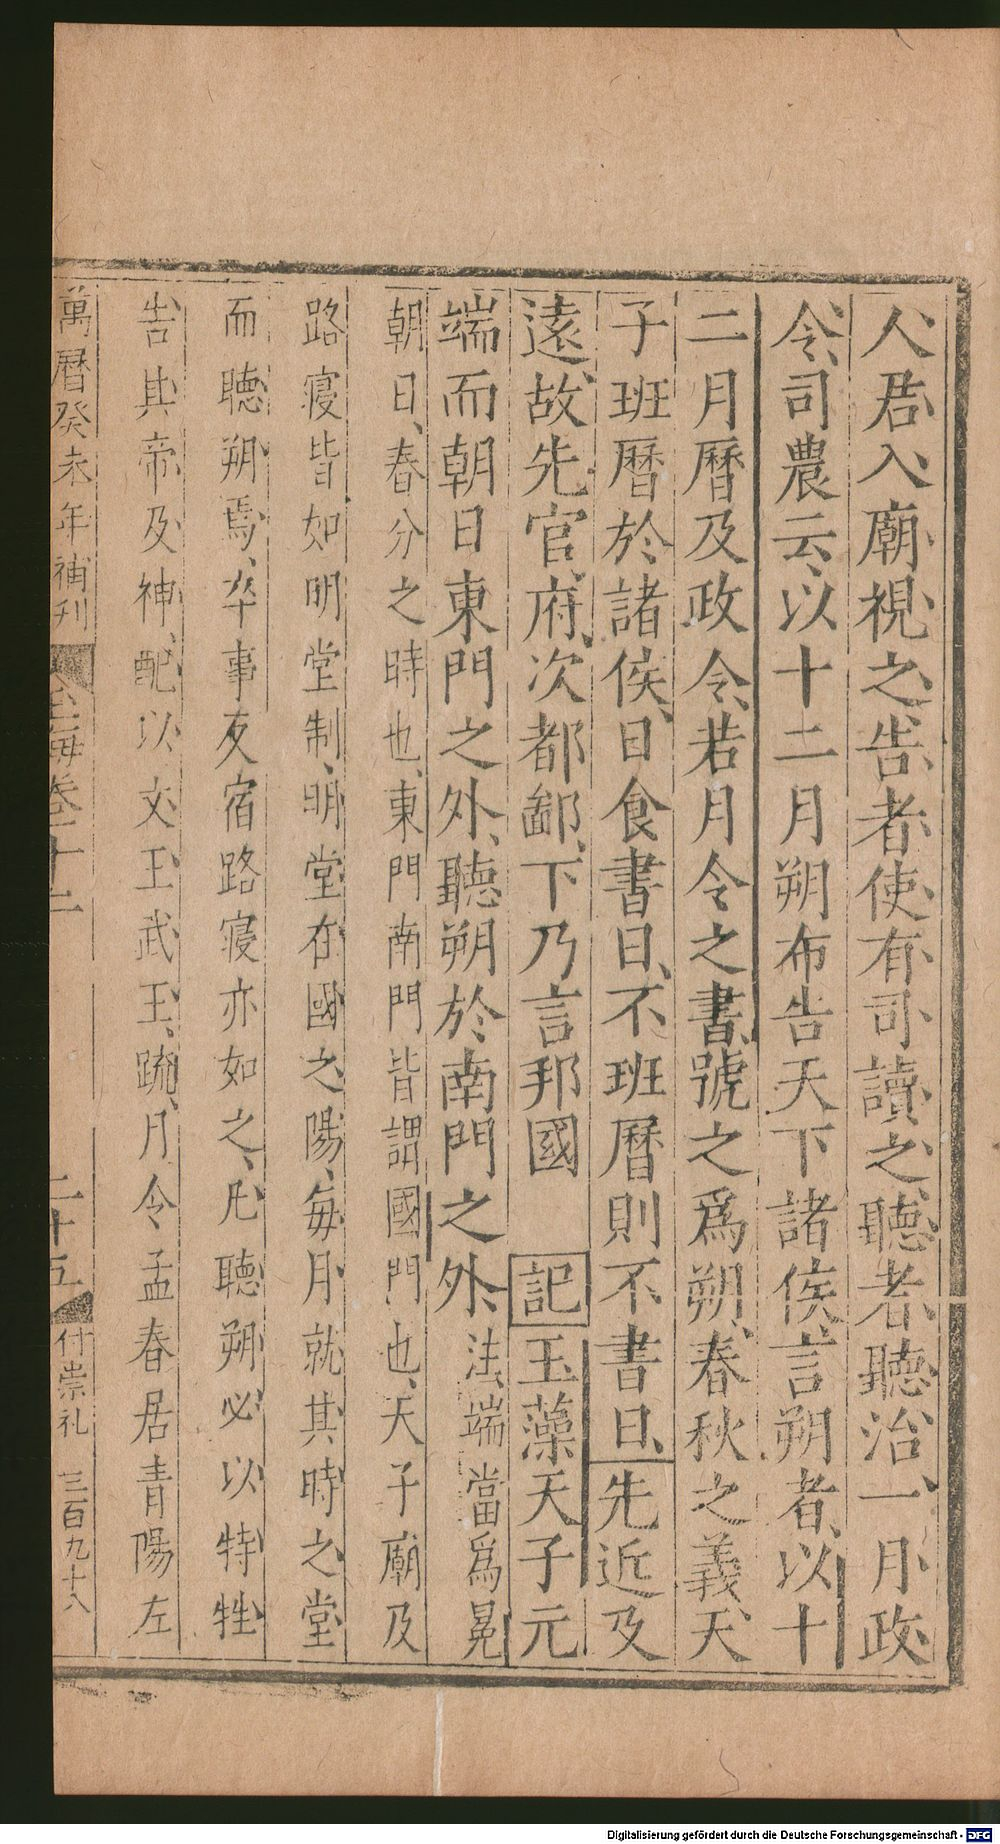 人君入廟視之告者使有司讀之聽者聽治一月政
令、司農云、以十二月朔布告天下諸侯、言朔者、以十
二月曆及政令、若月令之書、號之爲朔、春秋之義、天
子班曆於諸侯、日食書日、不班曆則不書日、先近及
遠、故先官府、次都鄙、下乃言邦國 記玉藻天子元
端而朝日東門之外、聽朔於南門之外、注、端當爲冕
朝日、春分之時也、東門南門皆謂國門也、天子廟及
路寢皆如明堂制、明堂在國之陽、每月就其時之堂
而聽朔焉、卒事反宿路寢亦如之、凡聽朔必以特牲
告其帝及神、配以文王武王、䟽、月令孟春居青陽左
萬曆癸未年補刊 玉海卷十二 二十五 付崇礼 三百九十八
Digitalisierung gefördert durch die Deutsche Forschungsgemeinschaft - DFG